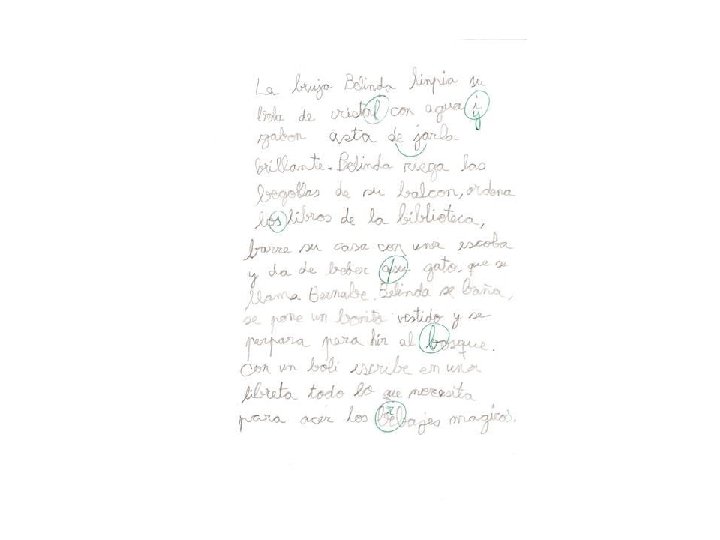 La bruja Belinda linpia su
bola de cristal con agua y
gabon asta de jarla
brillante. Belinda riega las
begollas de su balcon, ordena
los libros de la biblioteca,
barre su casa con una escoba
y da de beber a su gato que se
llama Bernabe. Belinda se baña,
se pone un bonito vestido y se
perpara para hir al bosque.
Con un boli escribe en una
libreta todo lo que necesita
para acer los bebajes magicos.